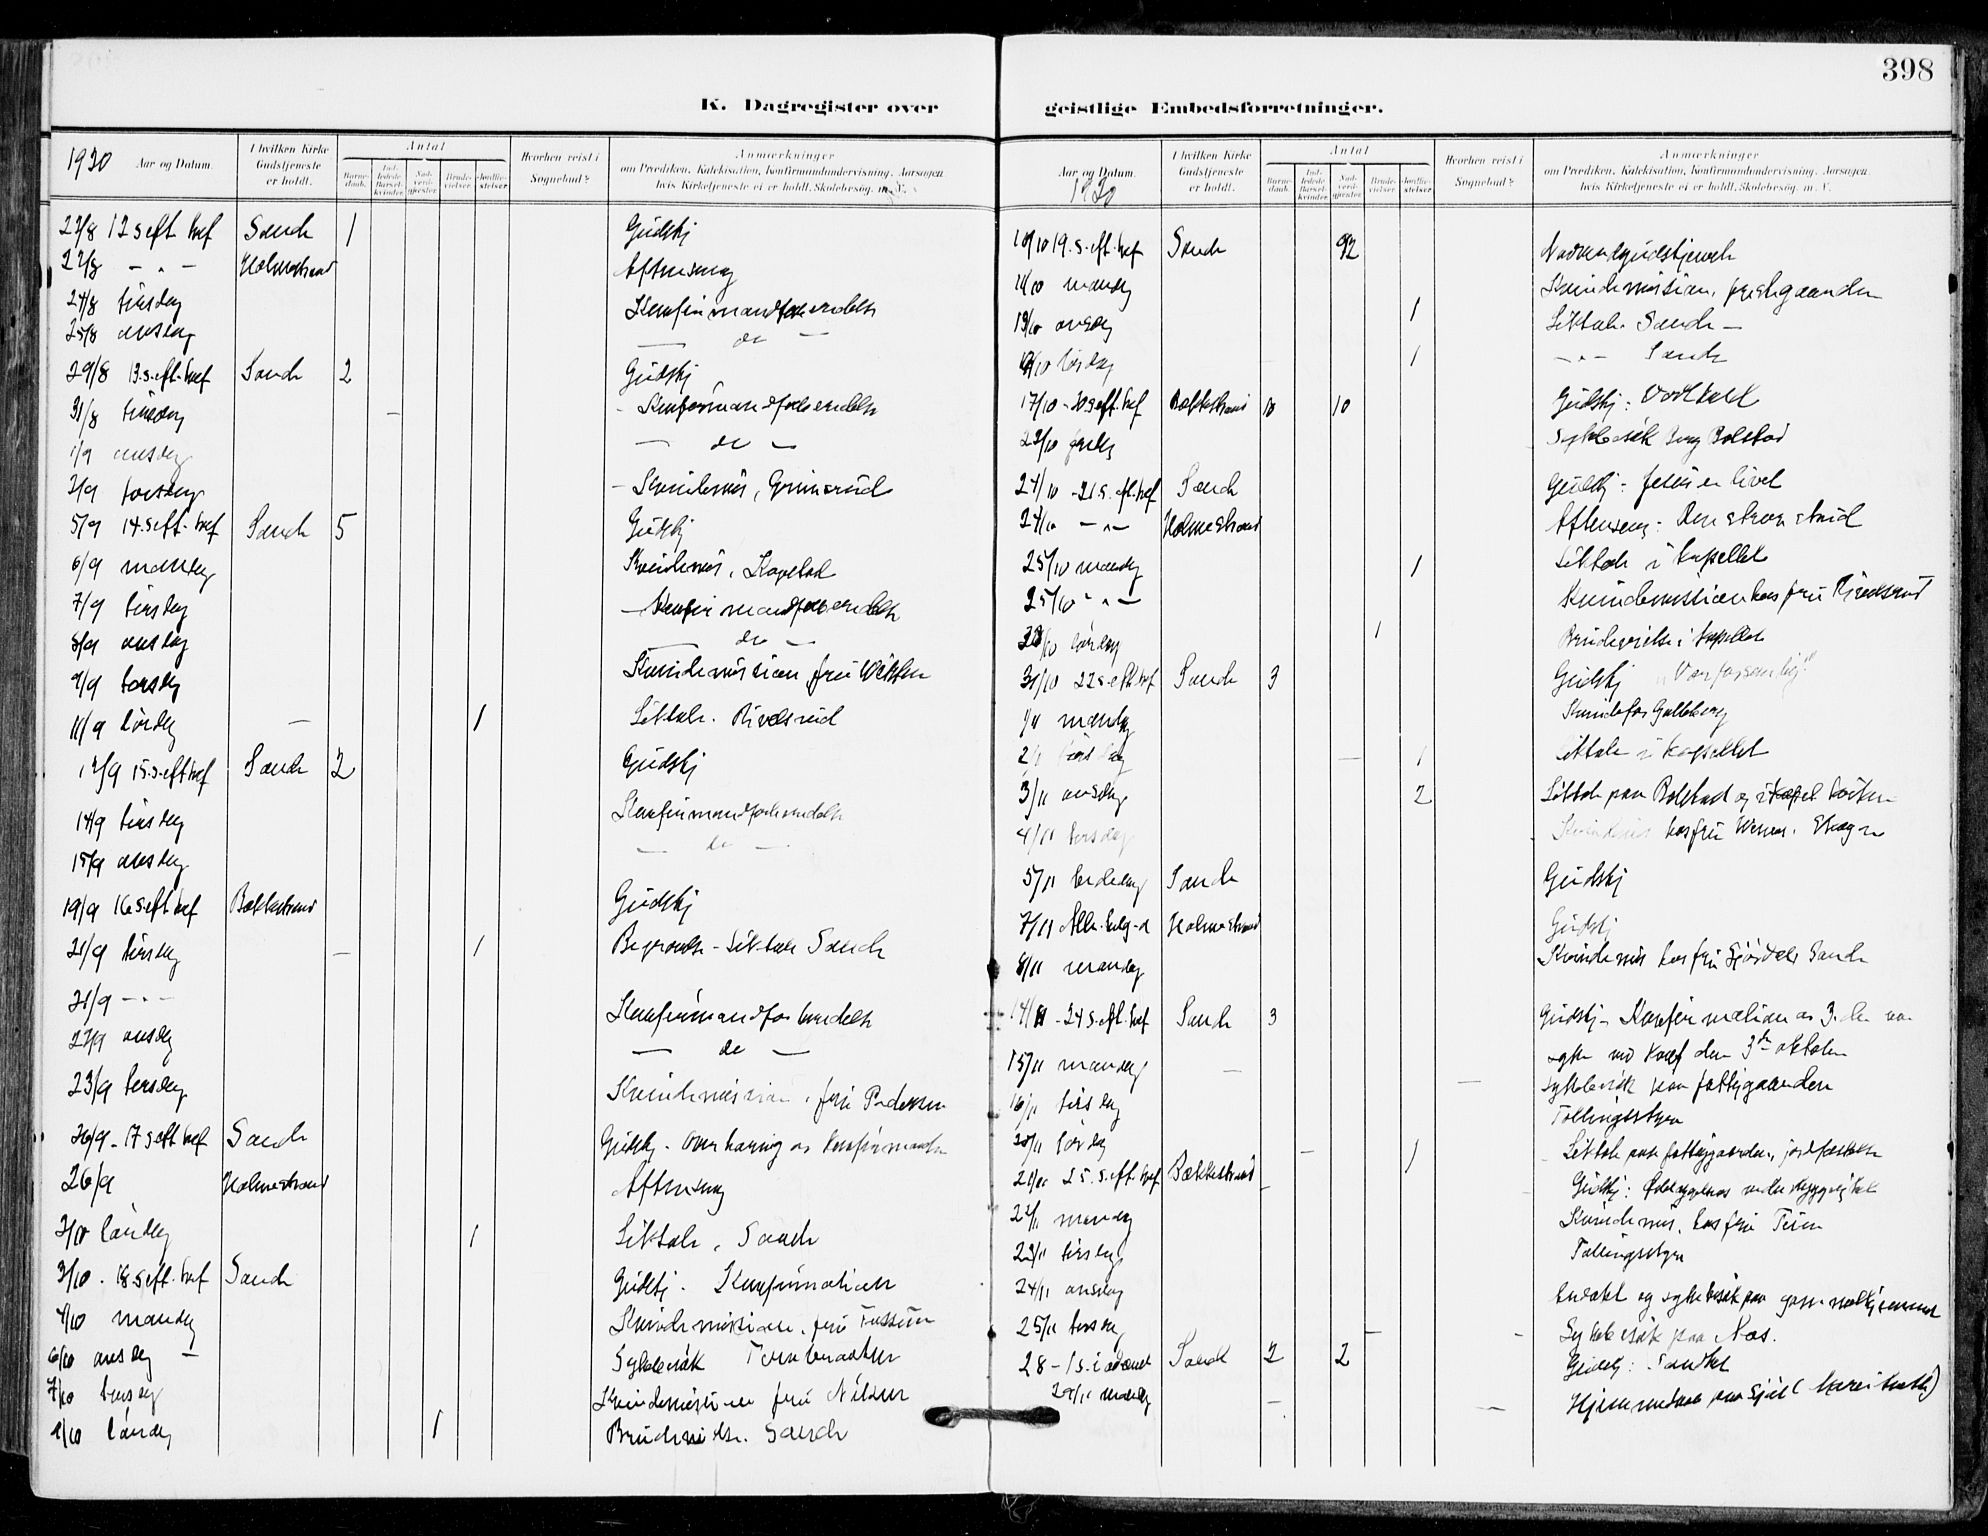 398
K. Dagregister over geistlige Embedsforretninger.
1920 Aar og Datum. I hvilken Kirke Gudstjeneste er holdt. Antal Barnedaab. Indledede Barselkvinder. Nadverdgjester. Brudevielser. Jordfæstelser. Hvorhen reist i Sognebud? Anmærkninger om Prædiken, Katekisation, Konfirmandundervisning, Aarsagen hvis Kirketjeneste ei er holdt, Skolebesøg m. V.
22/8 12 s eft tref Sande 1 Gudstj
22/8 - „ - Holmestrand Aftensang
24/8 tirsdag Konfirmandforberedelse
25/8 onsdag — do —
29/8 13. s. eft. tref Sande 2 Gudstj
31/8 tirsdag - Konfirmandforberedelse
1/9 onsdag — do —
2/9 torsdag - Kvindemis, Grimsrud
5/9 14. s eft. tref Sande 5 Gudstj
6/9 mandag Kvindemis, Kopstad
7/9 tirsdag — Konfirmandforberedelse
8/9 onsdag — do —
9/9 torsdag Kvindemission, fru
11/9 lördag — 1 Liktale. Revelsrud
12/9 15. s. eft tref Sande 2 Gudstj
14/9 tirsdag Konfirmandforberedelse
15/9 onsdag — do —
19/9 16 s eft tref Bækkestrand Gudstj
21/9 tirsdag — 1 Begravelse - Liktale Sande
21/9 - „ - Konfirmandforberedelse
22/9 onsdag — do —
23/9 torsdag Kvindemission, fru Pedersen
26/9 - 17 s eft tref Sande Gudstj - Overhøring av konfirmander
26/9 Holmestrand Aftensang
2/10 lördag 1 Liktale, Sande
3/10 . 18. s eft. tref Sande Gudstj. Konfirmation
4/10 mandag Kvindemission, fru Fossum
6/10 onsdag — Sykebesök
7/10 torsdag Kvindemission fru Nilsen
9/10 lördag 1 Brudevielse. Sande
Aar og Datum. 1920 I hvilken Kirke Gudstjeneste er holdt. Antal Barnedaab. Indledede Barselkvinder. Nadverdgjester. Brudevielser. Jordfæstelser. Hvorhen reist i Sognebud? Anmærkninger om Prædiken, Katekisation, Konfirmandundervisning, Aarsagen hvis Kirketjeneste ei er holdt, Skolebesøg m. V.
10/10 19. s. eft. tref Sande 92 Nadverdgudstjeneste
11/10 mandag Kvindemission, prestegaarden
13/10 onsdag 1 Liktale. Sande —
lördag 1 - „ - Sande
17/10 - 20 s eft. tref Bækkestrand 10 10 Gudstj:
fredag Sykebesök Bolstad
24/10 - 21 s. eft. tref Sande Gudstj: Jesus er livet
24/10 - „ - Holmestrand Aftensang:
25/10 mandag 1 Liktale i kapellet
25/10 - „ - Kvindemission hos fru
30/10 lördag 1 Brudevielse i kapellet
31/10 22 s. eft tref Sande 3 Gudstj
1/11 mandag Galleberg
2/11 tirsdag — 1 Liktale i kapellet
3/11 onsdag 2 Liktale paa Bolstad og i kapel
4/11 torsdag hos fru
5/11 bededag Sande Gudstj
7/11 Alle-helg-d Holmestrand Gudstj
8/11 mandag Kvindemis hos fru Sande
14/11 - 24 s. eft. tref Sande 3 Gudstj - Konfirmation av 3. der var
syke ved konf den 3die oktober
15/11 mandag — Sykebesök paa fattiggaarden
16/11 tirsdag Tællingsstyre
20/11 lördag 1 Liktale paa fattiggaarden, jordfæstelse
21/11 25. s. eft. tref Bækkestrand Gudstj:
22/11 mandag Kvindemis. hos fru
23/11 tirsdag Tællingsstyre
24/11 onsdag og sykebesök paa gamlehjemmet
25/11 torsdag Sykebesök paa Nos.
28 - 1 s. i advent Sande 2 2 Gudstj:
29/11 mandag Hjemmedaab paa